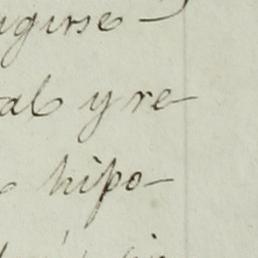 ugirse-
al y re-
hipo-